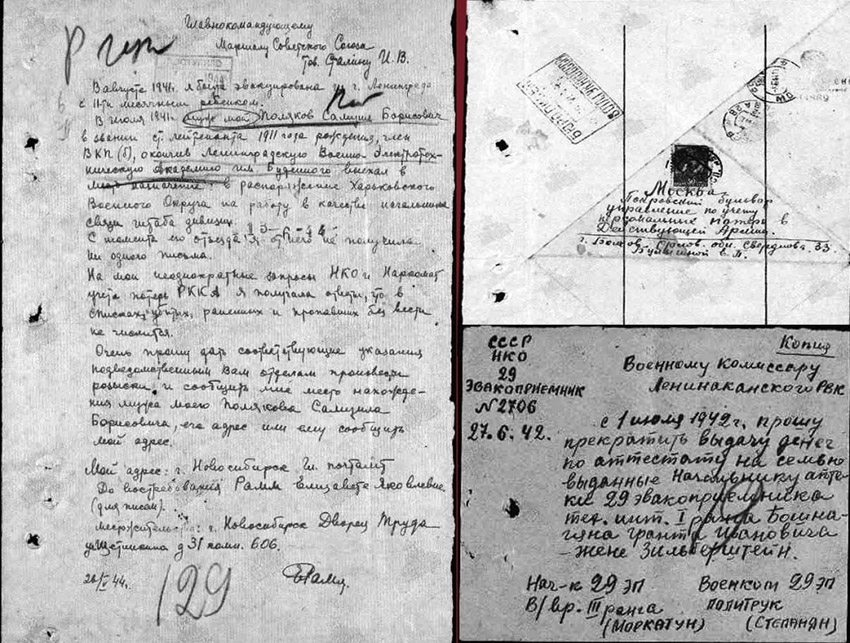 Главнокомандующему
Маршалу Советского Союза
Тов. Сталину И. В.
В августе 1941г. я была эвакуирована из г. Ленинграда
с 11-ти месячным ребенком.
В июле 1941г. муж мой Поляков Самуил Борисович
в звании ст. лейтенанта 1911 года рождения, член
ВКП(б), окончив Ленинградскую Военно-Электротех-
ническую Академию им. Буденного выехал в
место назначения в распоряжение Харьковского
Военного Округа на работу в качестве начальника
связи штаба дивизии.
С момента его отъезда я от него не получила
ни одного письма.
На мои неоднократные запросы НКО и Наркомат
учета потерь РККА я получала ответы, что в
списках убитых, раненых и пропавших без вести
не числится.
Очень прошу дать соответствующие указания
подведомственным Вам отделам произвести
розыски и сообщить мне место нахожде-
ния мужа моего Полякова Самуила
Борисовича, его адрес или ему сообщить
мой адрес.
Мой адрес: г. Новосибирск Гл. почтамт
До востребования Рамм Елизавете Яковлевне
(для писем).
г. Новосибирск Дворец Труда
д 31 комн. 606.
44г.
129
Рамм.
Москва
Покровский бульвар
управление по учету
персональных потерь в
Действующей Армии.
г. Волхов, Орлов. обл. Свердлова 33.
СССР
НКО
29
ЭВАКОПРИЕМНИК
N 2706
27.6.42.
Копия
Военному комиссару
Ленинаканского РВК
с 1 июля 1942г. прошу
прекратить выдачу денег
по аттестату на семью
выданные Начальнику апте-
ки 29 эвакоприемника
тех. инт. I ранга Бошна-
гяна Гранта Ивановича
- жене Зильберштейн.
Нач-к 29 ЭП
В/вр. III ранга
(МОРКАТУН)
Военком 29 ЭП
политрук
(СТЕПАНЯН)